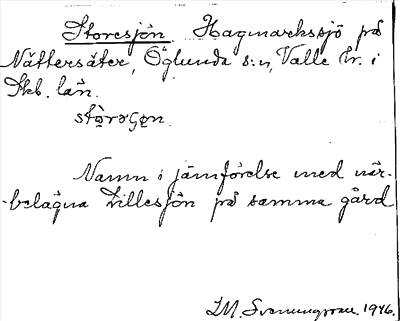 Storesjön. Hagmarkssjö på
Nättersäter, Öglunda s:n, Valle hr. i
Skb. län.
stò̀rəʃọn.
Namn i jämförelse med när-
-belägna Lillesjön på samma gård
I.M. Svenungsson. 1946.